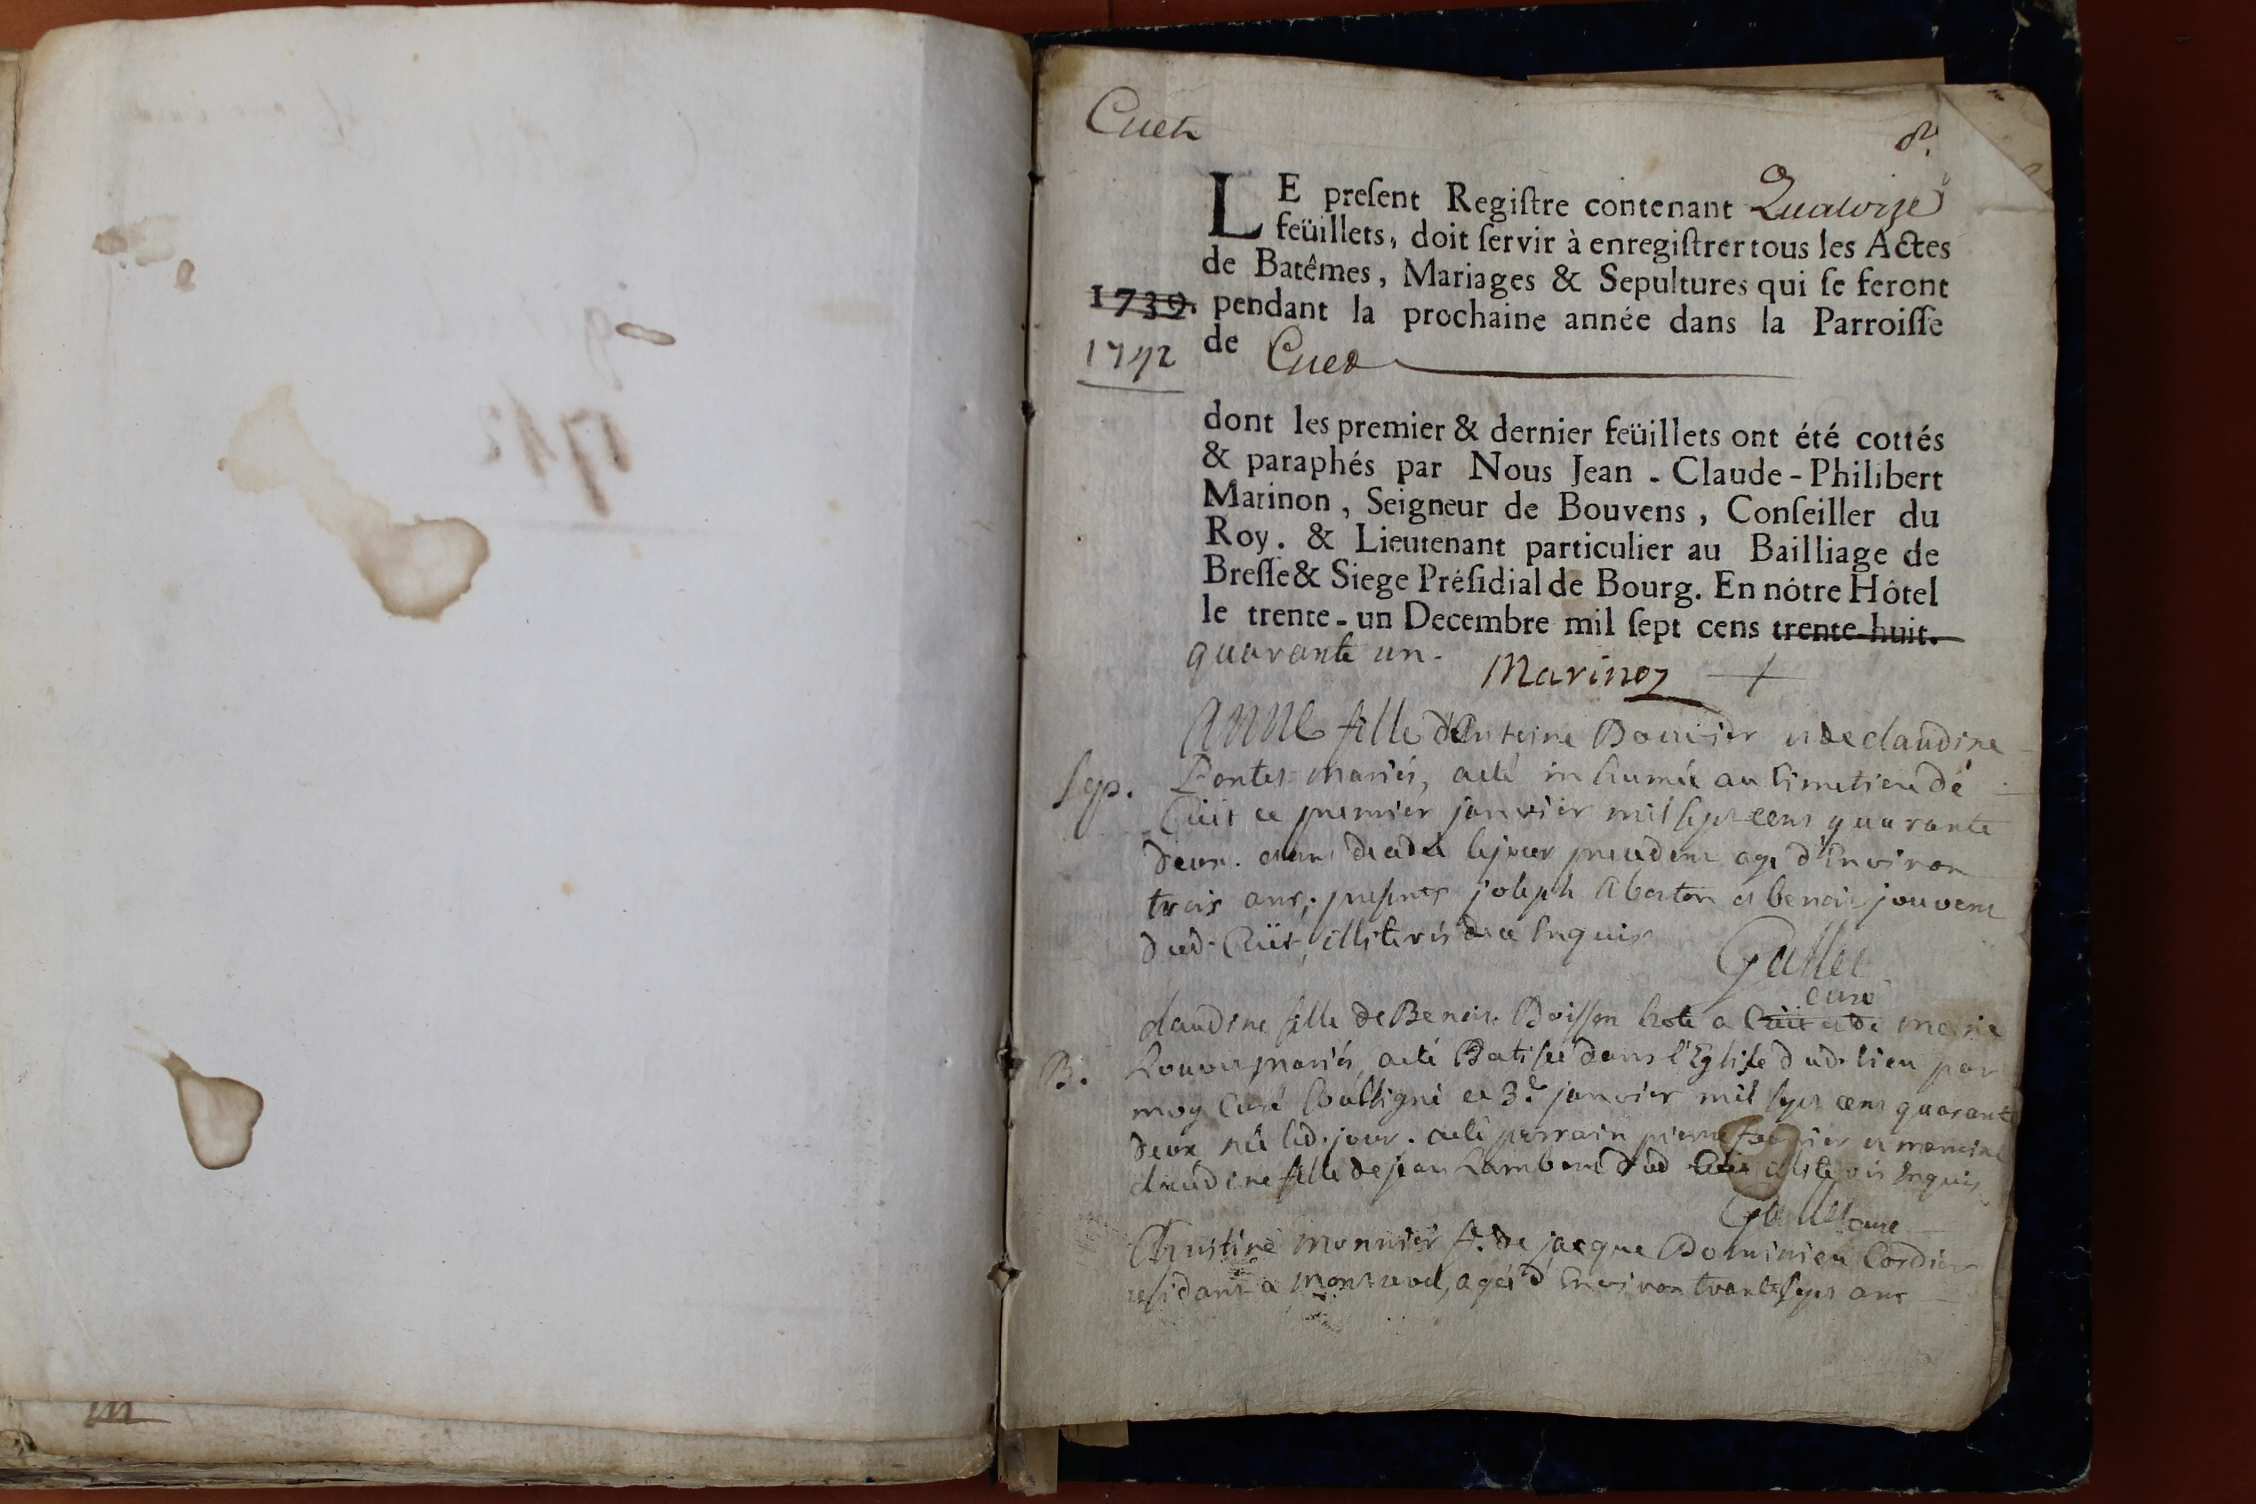 Cuet
LE preſent Regiſtre contenant Quatorze
feüillets, doit ſervir à enregiſtrer tous les Actes
de Batêmes, Mariages & Sepultures qui ſe feront
1739. pendant la prochaine année dans la Parroiſſe
1742
de Cuet
dont les premier & dernier feüillets ont été cottés
& paraphés par Nous Jean-Claude-Philibert
Marinon, Seigneur de Bouvens, Conſeiller du
Roy. & Lieutenant particulier au Bailliage de
Breſſe & Siege Préſidial de Bourg. En nôtre Hôtel
le trente-un Decembre mil ſept cens trente-huit.
quarante un.
Marinon
Anne fille d'Antoine Bouvier et de claudine
Sep. mariés, a eté inhumée au cimetiere de
Cüet ce premier janvier mil sept cens quarante
deux. decedée le jour precedent agé d'Environ
trois ans, presents joseph et benoit jouvent
dud. Cüet, illiterés de ce Enquis
Gallet
curé
claudine fille de Benoit Buisson hote a Cüet et de marie
B. mariés, a eté Batisée dans l'Eglise dud. lieu par
moy Curé soussigné ce 3e janvier mil sept cens quarante
deux née led. jour. a eté parrain pierre et mareine
claudine fille de jean Lambert dud Enquis
Gallet curé
Christine monnier f. de jacque Dominieu Cordier
residant a montrevel, agée d'Environ trante sept ans
1742